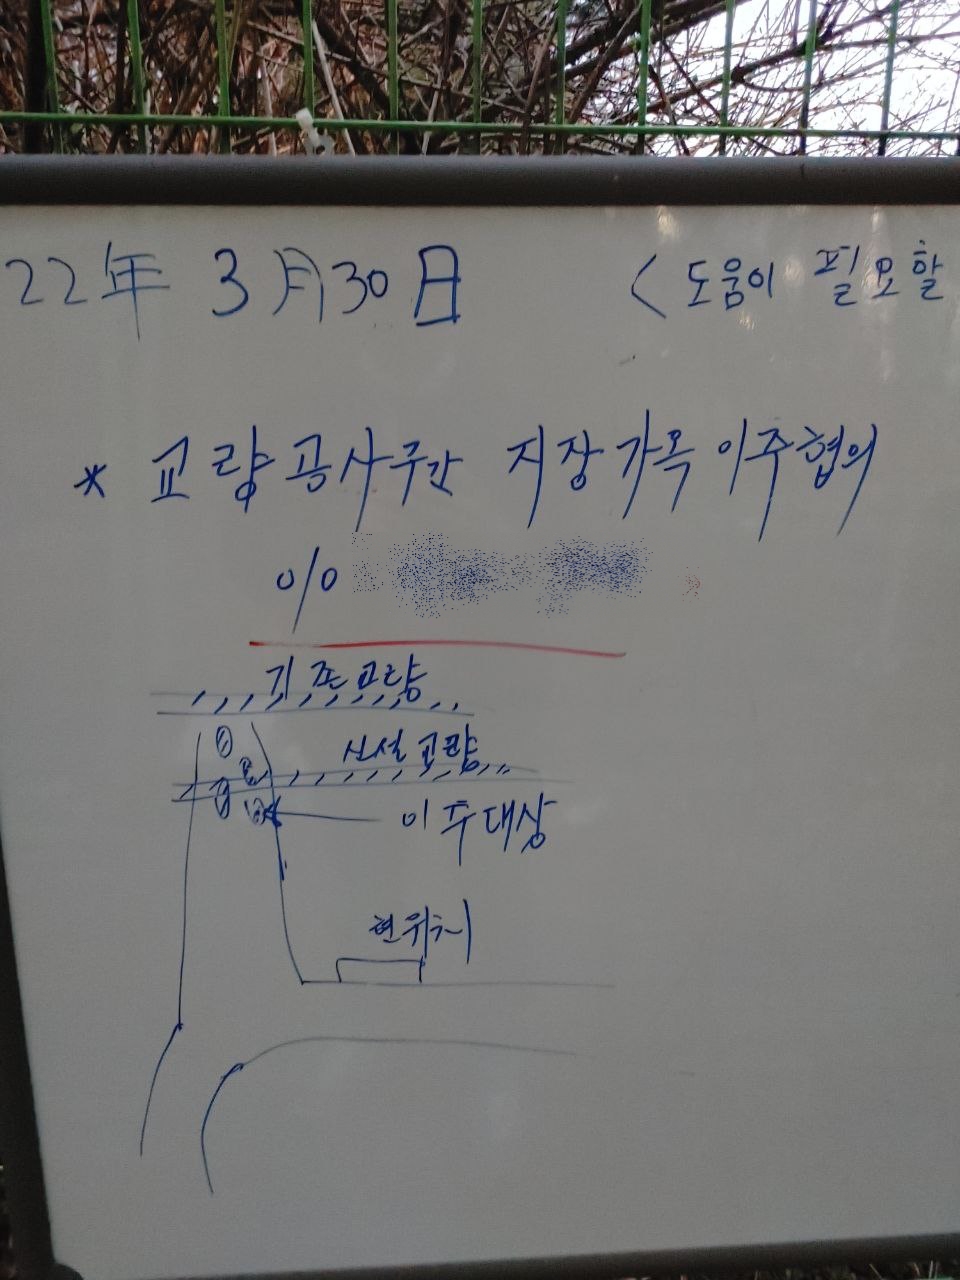 22年 3月30日 < 도움이 필요할
* 교량공사구간 지장가옥 이주협의
0/0
기존교량
신설교량
이주대상
현위치